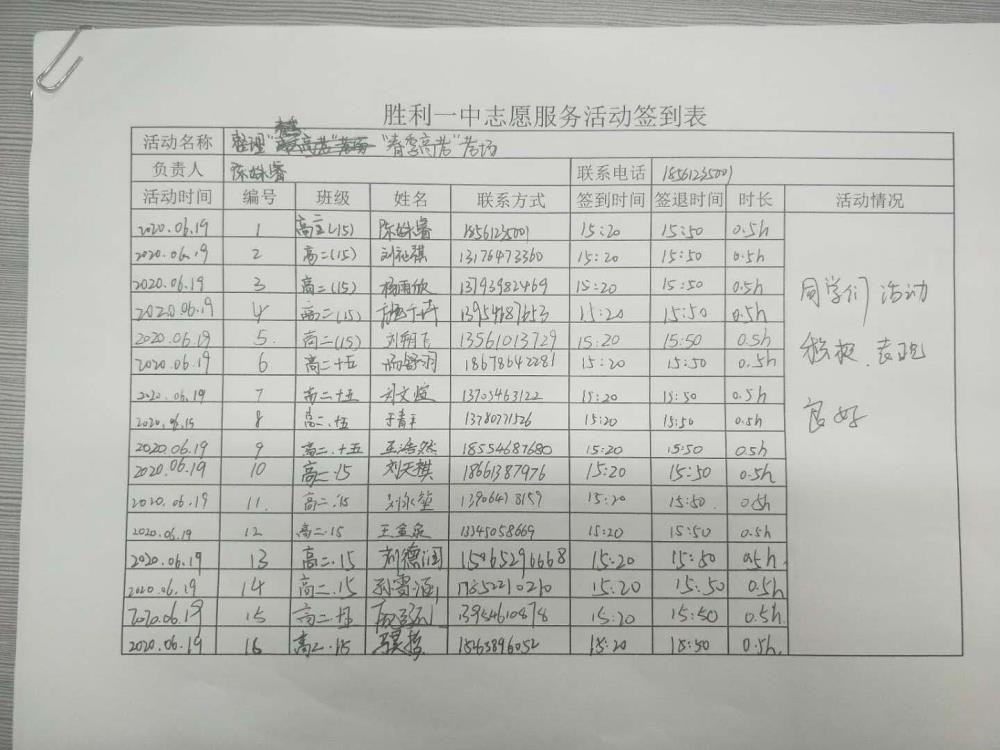 胜利一中志愿服务活动签到表
活动名称 整理 "春季高考"考场
负责人 陈姝睿 联系电话 18561235001
活动时间 编号 班级 姓名 联系方式 签到时间 签退时间 时长 活动情况
2020.06.19 1 高二(15) 陈姝睿 18561235001 15:20 15:50 0.5h
2020.06.19 2 高二(15) 13176473360 15:20 15:50 0.5h
2020.06.19 3 高二(15) 杨雨欣 13793982469 15:20 15:50 0.5h
2020.06.19 4 高二(15) 15:20 15:50 0.5h
2020.06.19 5. 高二(15) 刘翔飞 13561013729 15:20 15:50 0.5h
2020.06.19 6 高二十五 18678642281 15:20 15:50 0.5h
2020.06.19 7 高二十五 刘文煊 13703463122 15:20 15:50 0.5h
8 高二.十五 13780771526 15:20 15:50 0.5h
2020.06.19 9 高二.十五 孟浩然 18554687680 15:20 15:50 0.5h
2020.06.19 10 高二.15 刘天祺 18661387976 15:20 15:50 0.5h
2020.06.19 11. 高二.15 13906418159 15:20 15:50 0.5h
2020.06.19 12 高二.15 王金泉 13345058669 15:20 15:50 0.5h
2020.06.19 13 高二.15 刘德润 15065296668 15:20 15:50 0.5h
2020.06.19 14 高二.15 孙雪涵 15:20 15:50 0.5h
2020.06.19 15 高二 15:20 15:50 0.5h
2020.06.19 16 高二.15 15:20 15:50 0.5h
同学们活动
积极.表现
良好